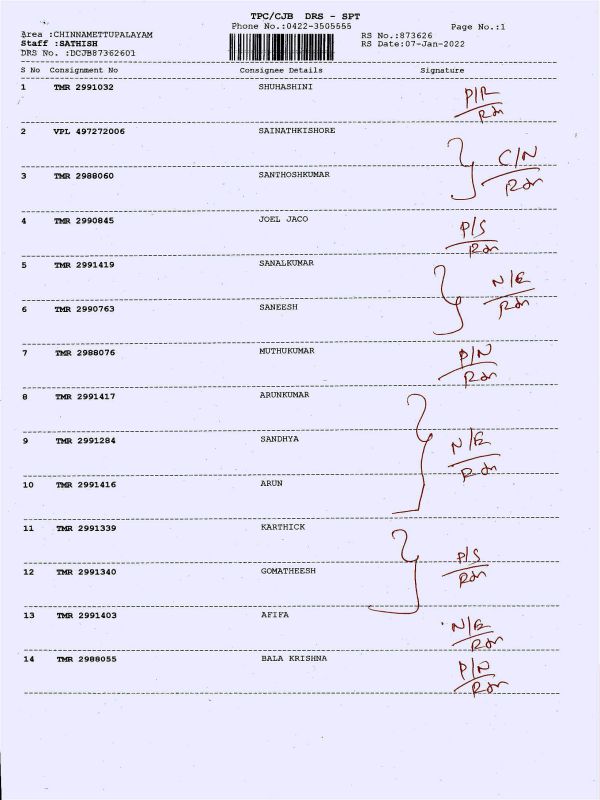 TPC/CJB DRS - SPT
Phone No.:0422-3505555 Page No.:1
Area :CHINNAMETTUPALAYAM RS No.:873626
Staff :SATHISH RS Date:07-Jan-2022
DRS No. :DCJB87362601
S No Consignment No Consignee Details Signature
1 TMR 2991032 SHUHASHINI P/R
Rdr
2 VPL 497272006 SAINATHKISHORE
C/N
3 TMR 2988060 SANTHOSHKUMAR Rdr
4 TMR 2990845 JOEL JACO P/S
Rdr
5 TMR 2991419 SANALKUMAR
N/E
6 TMR 2990763 SANEESH Rdr
7 TMR 2988076 MUTHUKUMAR P/N
Rdr
8 TMR 2991417 ARUNKUMAR
9 TMR 2991284 SANDHYA N/E
Rdr
10 TMR 2991416 ARUN
11 TMR 2991339 KARTHICK
P/S
12 TMR 2991340 GOMATHEESH Rdr
13 TMR 2991403 AFIFA N/E
Rdr
14 TMR 2988055 BALA KRISHNA P/N
Rdr